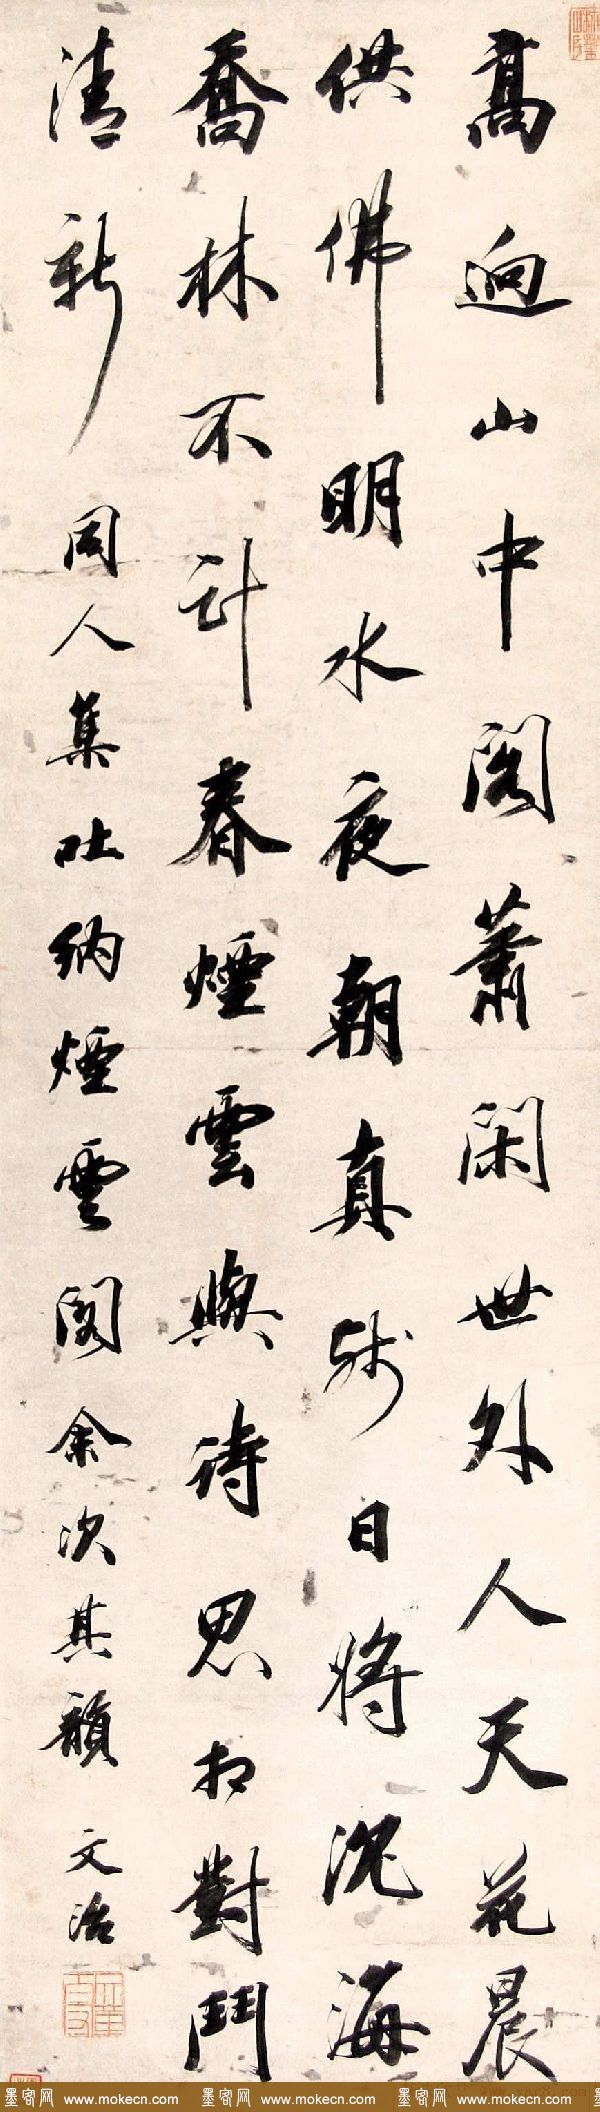 高迥山中閣蕭閑世外人天花晨
供佛明水夜朝真殘日將沉海
喬林不計春煙雲與詩思相對鬥
清新 同人集吐納煙雲閣余次其韻 文治
墨客网 www.mokecn.com 墨客网 www.mokecn.com 墨客网 www.mokecn.com 墨客网 www.mokecn.com